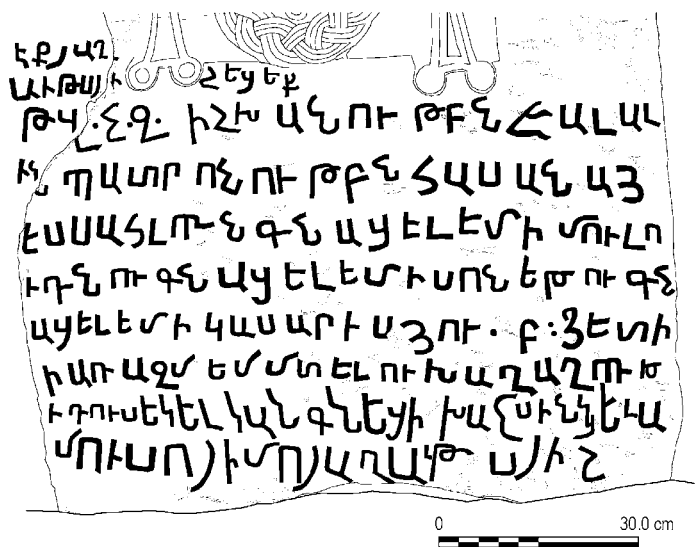 ԷՔՅԱՂ.
ԱՒԹԱՅԻ ՇԵՑԵՔ
ԹՎ.Հ.Զ. ԻՇԽԱՆՈՒԹԲՆ ՀԱԼԱԼ
ԻՆ ՊԱՏՐՈՆՈՒԹԲՆ ՀԱՍԱՆԱՅ
ԵՍ ՍԱՀԼՈՒՆ ԳՆԱՑԵԼ ԵՄ Ի ՄՈՒԼՈ
ՒԴՆ ՈՒ ԳՆԱՑԵԼ ԵՄ Ի ՍՈՆԵԹ ՈՒ ԳՆ
ԱՑԵԼ ԵՄ Ի ԿԱՍԱՐԻ ՍՅՈՒ. Բ: ՅԵՏԻ
Ի ԱՌԱԶՄ ԵՄ ՄՏԵԼ ՈՒ ԽԱՂԱՂՈՒԹ
Ի ԴՈՒՍ ԵԿԵԼ ԿԱՆԳՆԵՑԻ ԽԱՉՍ
ՄՈՒՍՈՅ ԻՄՈՅ ԱՂԱՒԹՍ ՅԻՇ
0 30.0 cm